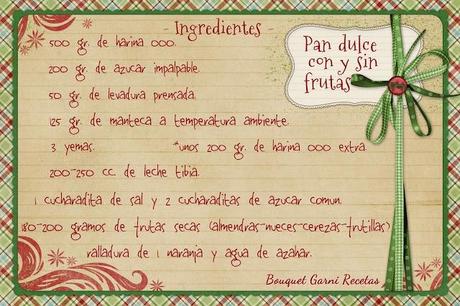 - Ingredientes -
500 gr. de harina 000.
Pan dulce
con y sin
frutas
200 gr. de azucar impalpable.
50 gr. de levadura prensada.
125 gr. de manteca a temperatura ambiente.
3 yemas. *unos 200 gr. de harina 000 extra
200-250 cc. de leche tibia.
1 cucharadita de sal y 2 cucharaditas de azucar comun.
180-200 gramos de frutas secas (almendras-nueces-cerezas-frutillas)
ralladura de 1 naranja y agua de azahar.
Bouquet Garni Recetas